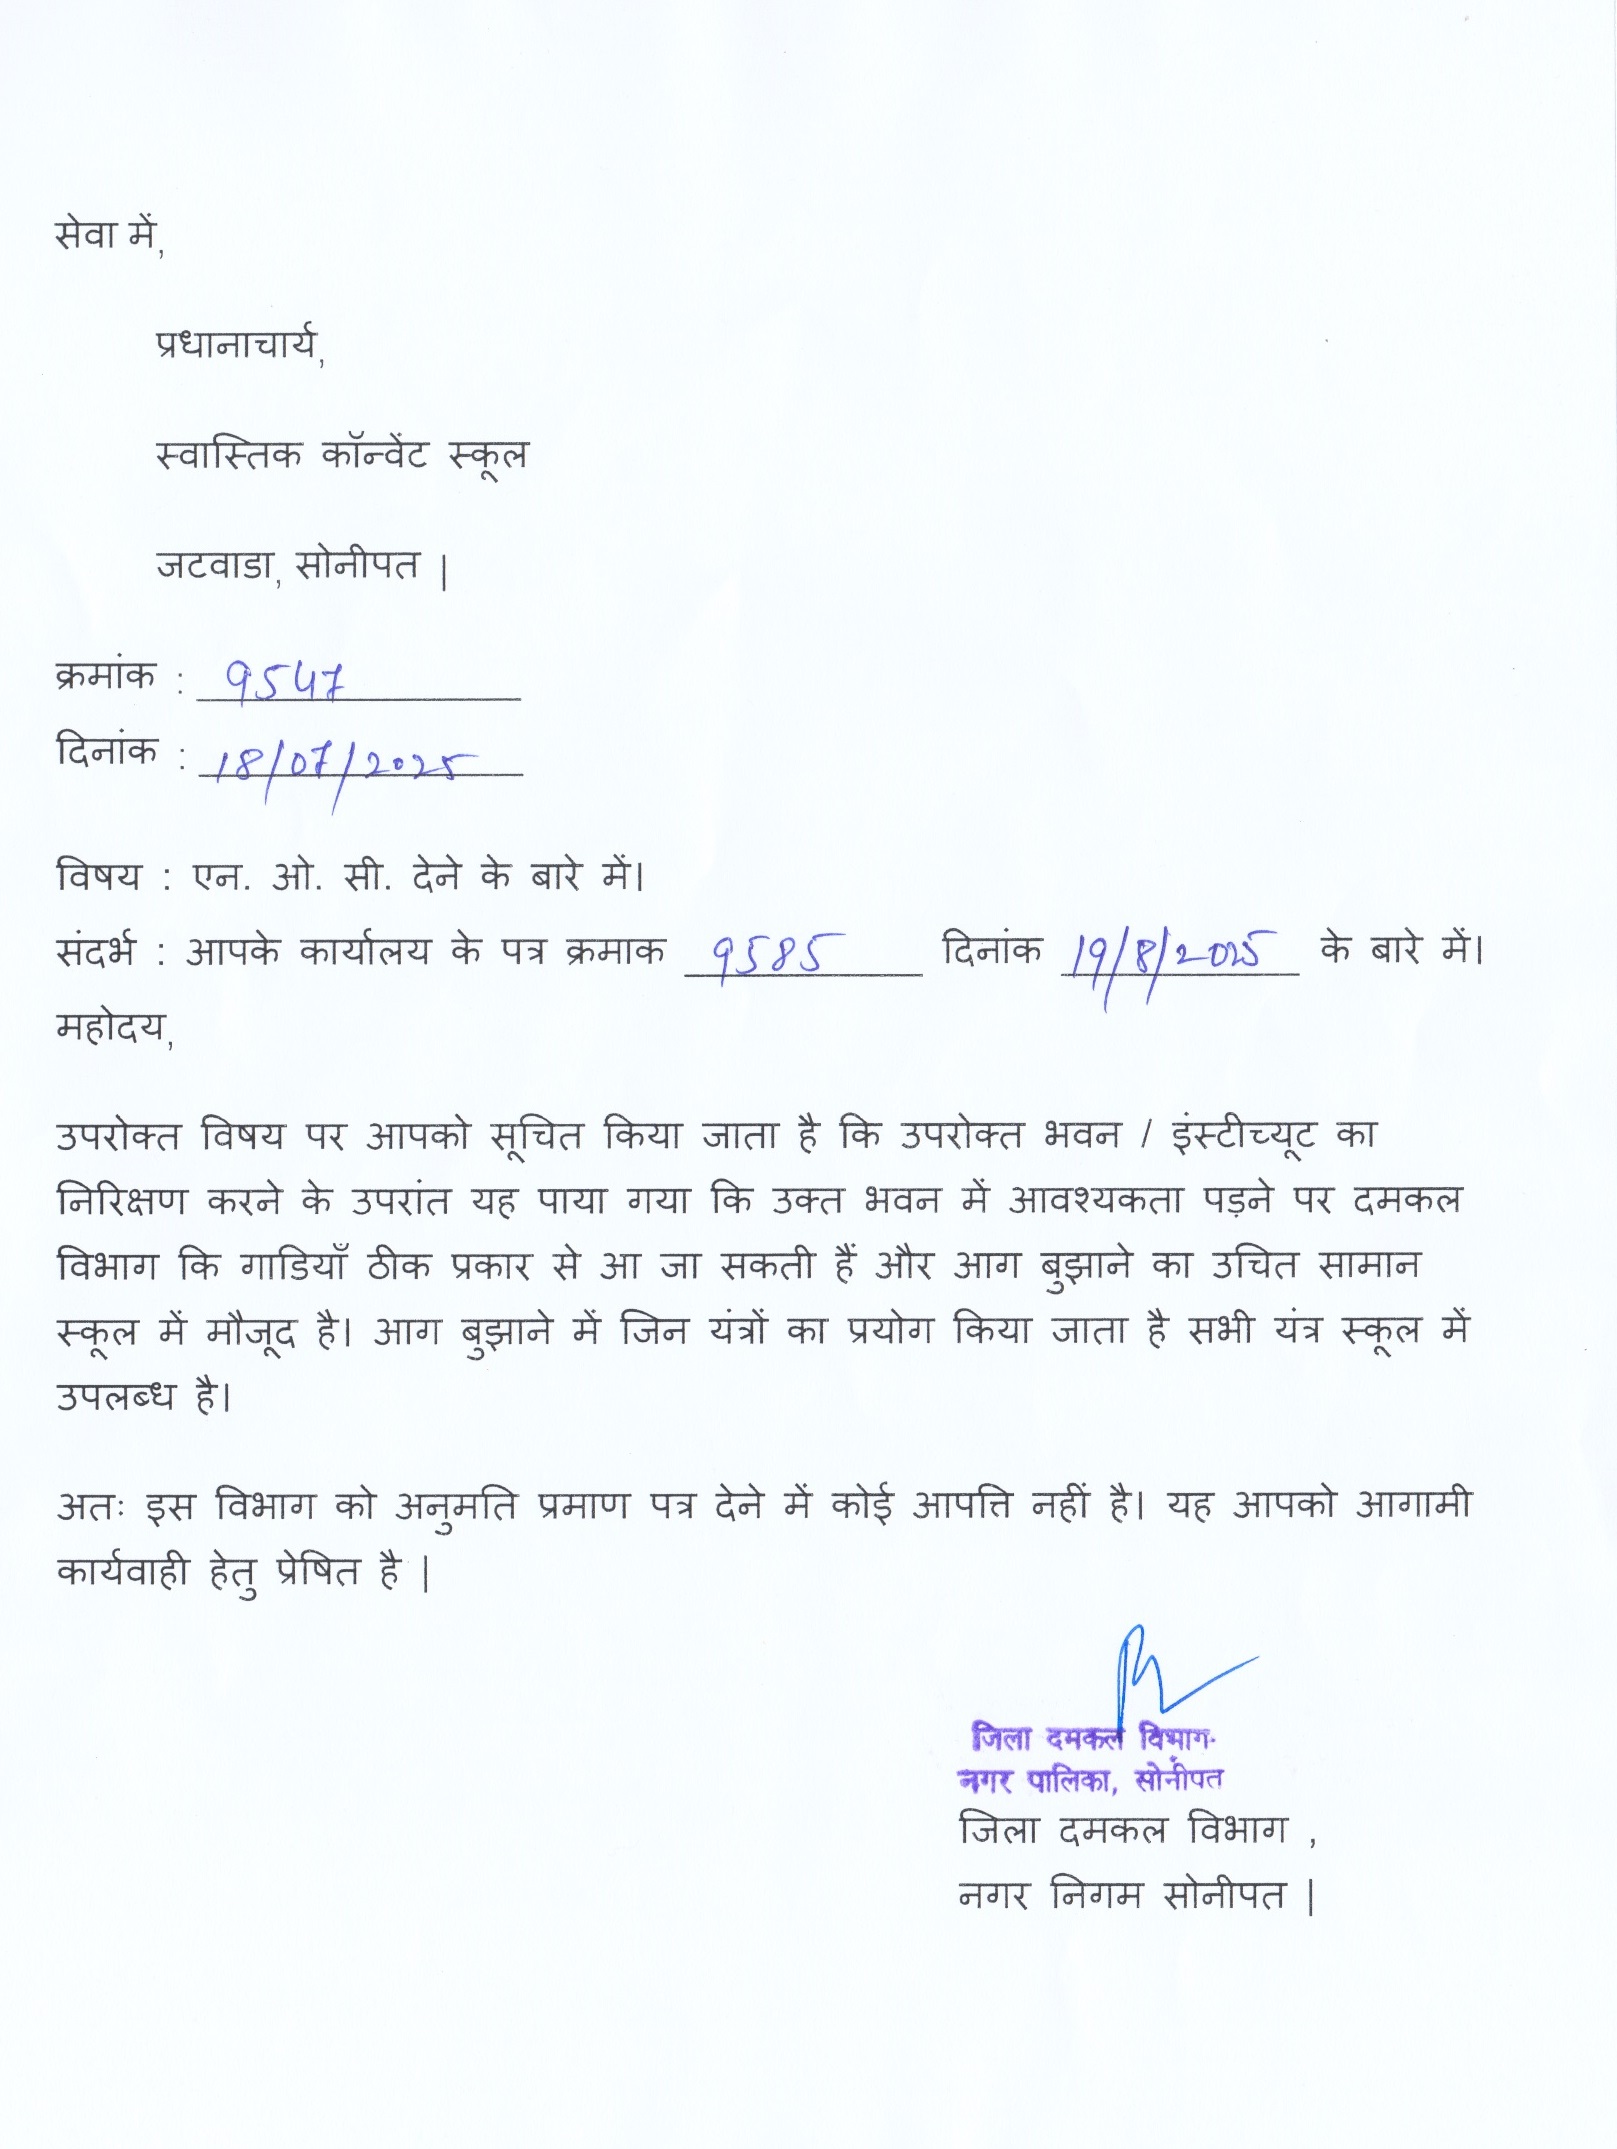 सेवा में,
प्रधानाचार्य,
स्वास्तिक कॉन्वेंट स्कूल
जटवाडा, सोनीपत |
क्रमांक : 9547
दिनांक : 18/07/2025
विषय : एन. ओ. सी. देने के बारे में।
संदर्भ : आपके कार्यालय के पत्र क्रमाक 9585 दिनांक 19/8/2025 के बारे में।
महोदय,
उपरोक्त विषय पर आपको सूचित किया जाता है कि उपरोक्त भवन / इंस्टीच्यूट का
निरिक्षण करने के उपरांत यह पाया गया कि उक्त भवन में आवश्यकता पड़ने पर दमकल
विभाग कि गाडियाँ ठीक प्रकार से आ जा सकती हैं और आग बुझाने का उचित सामान
स्कूल में मौजूद है। आग बुझाने में जिन यंत्रों का प्रयोग किया जाता है सभी यंत्र स्कूल में
उपलब्ध है।
अतः इस विभाग को अनुमति प्रमाण पत्र देने में कोई आपत्ति नहीं है। यह आपको आगामी
कार्यवाही हेतु प्रेषित है |
जिला दमकल विभाग
नगर पालिका, सोनीपत
जिला दमकल विभाग ,
नगर निगम सोनीपत |